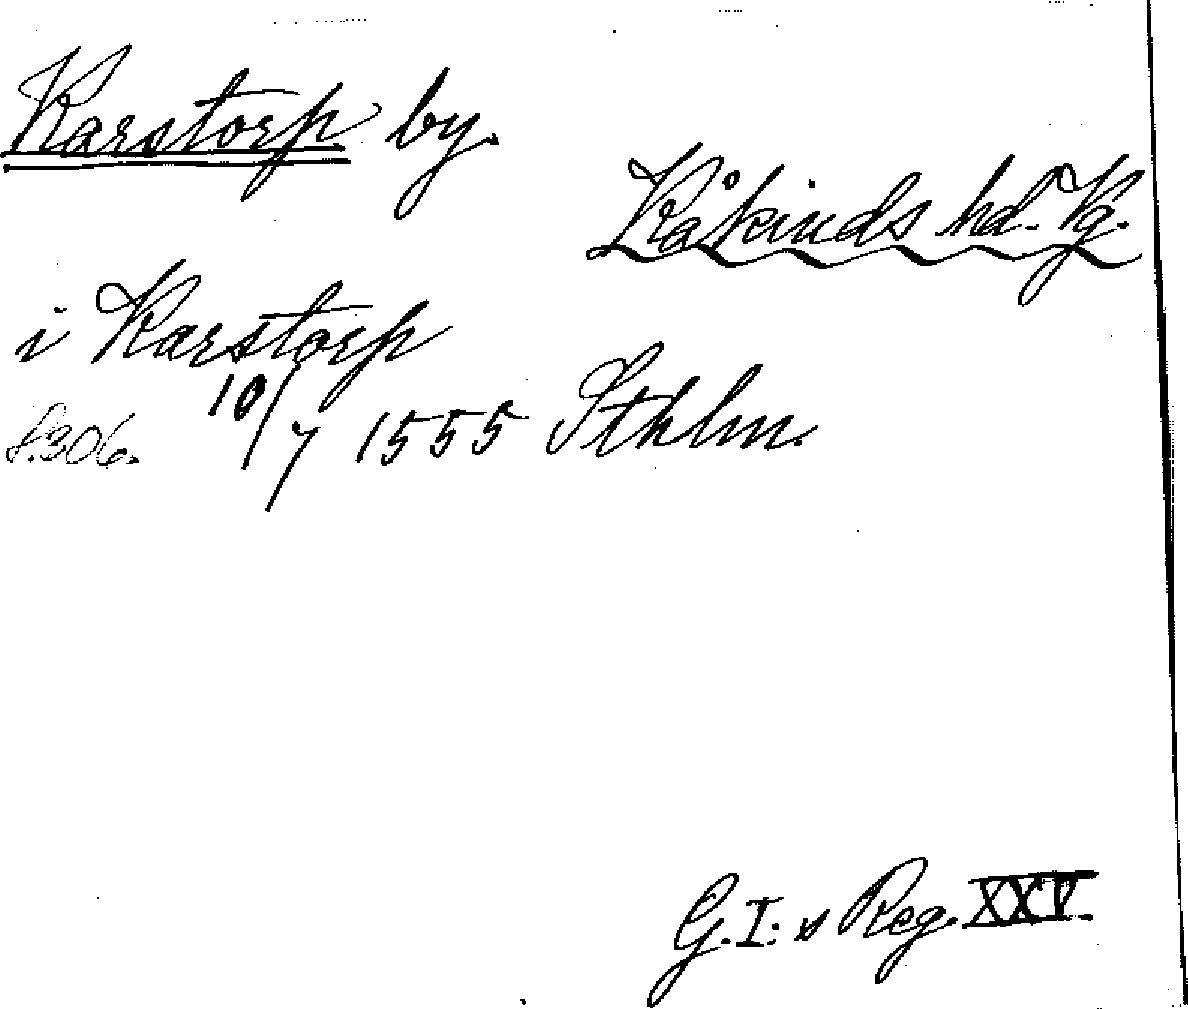 Karstorp by.
Kåkinds hd. Vg.
i Karstorp
s. 306. 10/7 1555 Sthlm.
G. I: s Reg. XXV.